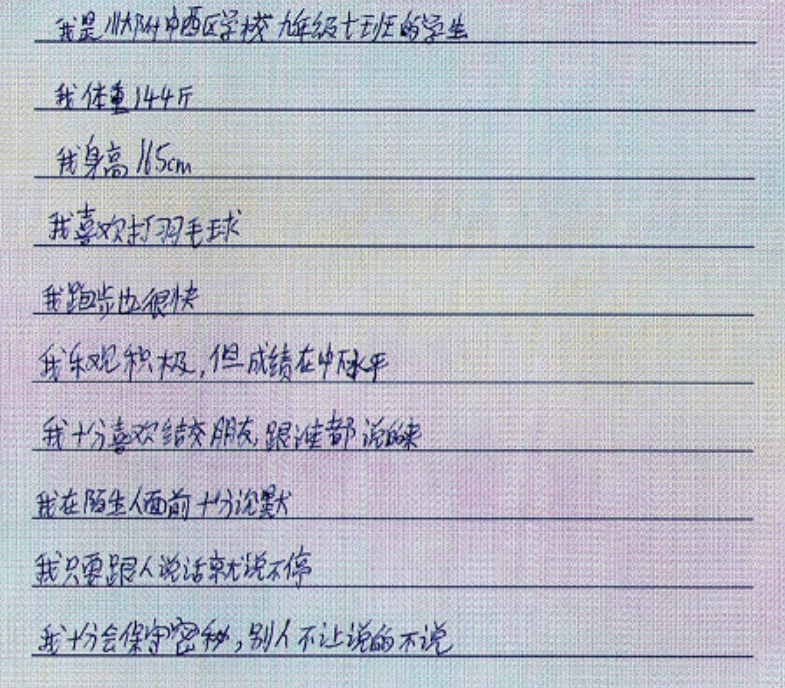 我是川大附中西区学校九年级七班的学生
我体重144斤
我身高165cm
我喜欢打羽毛球
我跑步也很快
我乐观积极,但成绩在中下水平
我十分喜欢结交朋友,跟谁都说的来
我在陌生人面前十分沉默
我只要跟人说话就说不停
我十分会保守密秘,别人不让说的不说